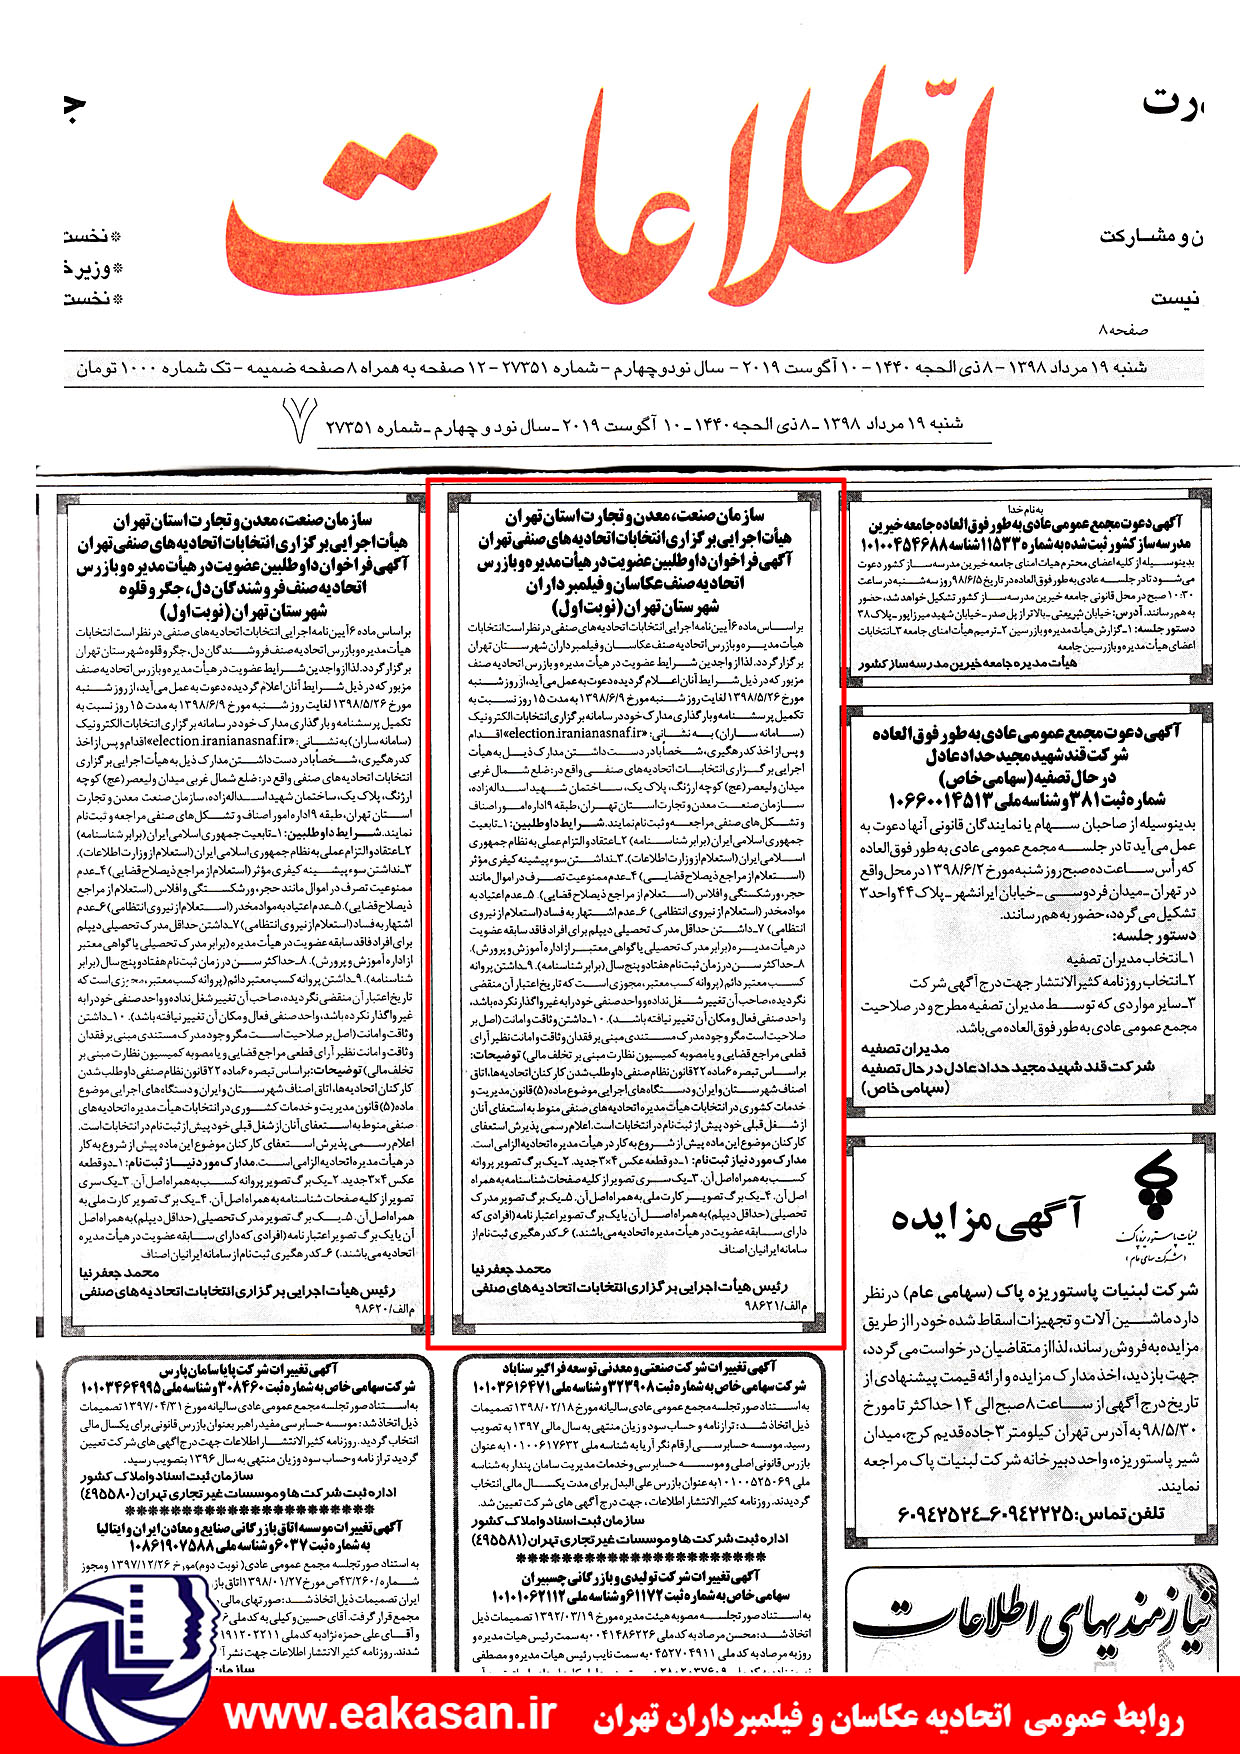 اطّلاعات
ورت
ن و مشارکت
نیست
صفحه۸
* نخست
* وزیر
* نخست
شنبه ۱۹ مرداد ۱۳۹۸ – ۸ ذی الحجه ۱۴۴۰ – ۱۰ آگوست ۲۰۱۹ – سال نودوچهارم – شماره ۲۷۳۵۱ – ۱۲ صفحه به همراه ۸ صفحه ضمیمه – تک شماره ۱۰۰۰ تومان
شنبه ۱۹ مرداد ۱۳۹۸ ـ ۸ ذی الحجه ۱۴۴۰ ـ ۱۰ آگوست ۲۰۱۹ ـ سال نود و چهارم ـ شماره ۲۷۳۵۱
۷
به نام خدا
آگهی دعوت مجمع عمومی عادی به طور فوق العاده جامعه خیرین
مدرسه ساز کشور ثبت شده به شماره ۱۱۵۳۳ شناسه ۱۰۱۰۰۴۵۴۶۸۸
بدینوسیله از کلیه اعضای محترم هیات امنای جامعه خیرین مدرسه ساز کشور دعوت
می شود تا در جلسه عادی به طور فوق العاده در تاریخ ۹۸/۶/۵ روز سه شنبه در ساعت
۱۰:۳۰ صبح در محل قانونی جامعه خیرین مدرسه ساز کشور تشکیل خواهد شد، حضور
به هم رسانند. آدرس: خیابان شریعتی ـ بالاتر از پل صدر ـ خیابان شهید میرزاپور ـ پلاک ۳۸
دستور جلسه: ۱ـ گزارش هیأت مدیره و بازرسین ۲ـ ترمیم هیأت امنای جامعه ۳ـ انتخابات
اعضای هیأت مدیره و بازرسین جامعه
هیأت مدیره جامعه خیرین مدرسه ساز کشور
آگهی دعوت مجمع عمومی عادی به طور فوق العاده
شرکت قند شهید مجید حداد عادل
در حال تصفیه (سهامی خاص)
شماره ثبت ۳۸۱ و شناسه ملی ۱۰۶۶۰۰۱۴۵۱۳
بدینوسیله از صاحبان سهام یا نمایندگان قانونی آنها دعوت به
عمل می آید تا در جلسه مجمع عمومی عادی به طور فوق العاده
که رأس ساعت ده صبح روز شنبه مورخ ۱۳۹۸/۶/۲ در محل واقع
در تهران ـ میدان فردوسی ـ خیابان ایرانشهر ـ پلاک ۴۴ واحد ۳
تشکیل می گردد، حضور به هم رسانند.
دستور جلسه:
۱ـ انتخاب مدیران تصفیه
۲ـ انتخاب روزنامه کثیرالانتشار جهت درج آگهی شرکت
۳ـ سایر مواردی که توسط مدیران تصفیه مطرح و در صلاحیت
مجمع عمومی عادی به طور فوق العاده می باشد.
مدیران تصفیه
شرکت قند شهید مجید حداد عادل در حال تصفیه
(سهامی خاص)
آگهی مزایده
لبنیات پاستوریزه پاک
(شرکت سهامی عام)
شرکت لبنیات پاستوریزه پاک (سهامی عام) در نظر
دارد ماشین آلات و تجهیزات اسقاط شده خود را از طریق
مزایده به فروش رساند، لذا از متقاضیان درخواست می گردد،
جهت بازدید، اخذ مدارک مزایده و ارائه قیمت پیشنهادی از
تاریخ درج آگهی از ساعت ۸ صبح الی ۱۴ حداکثر تا مورخ
۹۸/۵/۳۰ به آدرس تهران کیلومتر ۳ جاده قدیم کرج، میدان
شیر پاستوریزه، واحد دبیرخانه شرکت لبنیات پاک مراجعه
نمایند.
تلفن تماس: ۶۰۹۴۲۲۲۵ـ۶۰۹۴۲۵۲۴
نیازمندیهای اطلاعات
سازمان صنعت، معدن و تجارت استان تهران
هیأت اجرایی برگزاری انتخابات اتحادیه های صنفی تهران
آگهی فراخوان داوطلبین عضویت در هیأت مدیره و بازرس
اتحادیه صنف عکاسان و فیلمبرداران
شهرستان تهران (نوبت اول)
براساس ماده ۶ آیین نامه اجرایی انتخابات اتحادیه های صنفی در نظر است انتخابات
هیأت مدیره و بازرس اتحادیه صنف عکاسان و فیلمبرداران شهرستان تهران
برگزار گردد. لذا از واجدین شرایط عضویت در هیأت مدیره و بازرس اتحادیه صنف
مزبور که در ذیل شرایط آنان اعلام گردیده دعوت به عمل می آید، از روز شنبه
مورخ ۱۳۹۸/۵/۲۶ لغایت روز شنبه مورخ ۱۳۹۸/۶/۹ به مدت ۱۵ روز نسبت به
تکمیل پرسشنامه و بارگذاری مدارک خود در سامانه برگزاری انتخابات الکترونیک
(سامانه ساران) به نشانی: «election.iranianasnaf.ir» اقدام
و پس از اخذ کد رهگیری، شخصاً با در دست داشتن مدارک ذیل به هیأت
اجرایی برگزاری انتخابات اتحادیه های صنفی واقع در: ضلع شمال غربی
میدان ولیعصر (عج) کوچه ارژنگ، پلاک یک، ساختمان شهید اسداله زاده،
سازمان صنعت معدن و تجارت استان تهران، طبقه ۹ اداره امور اصناف
و تشکل های صنفی مراجعه و ثبت نام نمایند. شرایط داوطلبین: ۱ـ تابعیت
جمهوری اسلامی ایران (برابر شناسنامه) ۲ـ اعتقاد و التزام عملی به نظام جمهوری
اسلامی ایران (استعلام از وزارت اطلاعات). ۳ـ نداشتن سوء پیشینه کیفری مؤثر
(استعلام از مراجع ذیصلاح قضایی) ۴ـ عدم ممنوعیت تصرف در اموال مانند
حجر، ورشکستگی و افلاس (استعلام از مراجع ذیصلاح قضایی). ۵ـ عدم اعتیاد به
مواد مخدر (استعلام از نیروی انتظامی) ۶ـ عدم اشتهار به فساد (استعلام از نیروی
انتظامی) ۷ـ داشتن حداقل مدرک تحصیلی دیپلم برای افراد فاقد سابقه عضویت
در هیأت مدیره (برابر مدرک تحصیلی یا گواهی معتبر از اداره آموزش و پرورش).
۸ـ حداکثر سن در زمان ثبت نام هفتاد و پنج سال (برابر شناسنامه). ۹ـ داشتن پروانه
کسب معتبر دائم (پروانه کسب معتبر، مجوزی است که تاریخ اعتبار آن منقضی
نگردیده، صاحب آن تغییر شغل نداده و واحد صنفی خود را به غیر واگذار نکرده باشد،
واحد صنفی فعال و مکان آن تغییر نیافته باشد). ۱۰ـ داشتن وثاقت و امانت (اصل بر
صلاحیت است مگر وجود مدرک مستندی مبنی بر فقدان وثاقت و امانت نظیر آرای
قطعی مراجع قضایی و یا مصوبه کمیسیون نظارت مبنی بر تخلف مالی) توضیحات:
براساس تبصره ۶ ماده ۲۲ قانون نظام صنفی داوطلب شدن کارکنان اتحادیه ها، اتاق
اصناف شهرستان و ایران و دستگاه های اجرایی موضوع ماده (۵) قانون مدیریت و
خدمات کشوری در انتخابات هیأت مدیره اتحادیه های صنفی منوط به استعفای آنان
از شغل قبلی خود پیش از ثبت نام در انتخابات است. اعلام رسمی پذیرش استعفای
کارکنان موضوع این ماده پیش از شروع به کار در هیأت مدیره اتحادیه الزامی است.
مدارک مورد نیاز ثبت نام: ۱ـ دو قطعه عکس ۴×۳ جدید. ۲ـ یک برگ تصویر پروانه
کسب به همراه اصل آن. ۳ـ یک سری تصویر از کلیه صفحات شناسنامه به همراه
اصل آن. ۴ـ یک برگ تصویر کارت ملی به همراه اصل آن. ۵ـ یک برگ تصویر مدرک
تحصیلی (حداقل دیپلم) به همراه اصل آن یا یک برگ تصویر اعتبارنامه (افرادی که
دارای سابقه عضویت در هیأت مدیره اتحادیه می باشند.) ۶ـ کد رهگیری ثبت نام از
سامانه ایرانیان اصناف
محمد جعفرنیا
رئیس هیأت اجرایی برگزاری انتخابات اتحادیه های صنفی
م الف/۹۸۶۲۱
آگهی تغییرات شرکت صنعتی و معدنی توسعه فراگیر سناباد
شرکت سهامی خاص به شماره ثبت ۳۲۳۹۰۸ و شناسه ملی ۱۰۱۰۳۶۱۶۴۷۱
به استناد صورتجلسه مجمع عمومی عادی سالیانه مورخ ۱۳۹۸/۰۲/۱۸ تصمیمات
ذیل اتخاذ شد: ترازنامه و حساب سود و زیان منتهی به سال مالی ۱۳۹۷ به تصویب
رسید. موسسه حسابرسی ارقام نگر آریا به شناسه ملی ۱۰۱۰۰۶۱۷۶۳۲ به عنوان
بازرس قانونی اصلی و موسسه حسابرسی و خدمات مدیریت سامان پندار به شناسه
ملی ۱۰۱۰۰۵۲۵۰۶۹ به عنوان بازرس علی البدل برای مدت یکسال مالی انتخاب
گردیدند. روزنامه کثیرالانتشار اطلاعات، جهت درج آگهی های شرکت تعیین شد.
سازمان ثبت اسناد و املاک کشور
اداره ثبت شرکت ها و موسسات غیرتجاری تهران (۴۹۵۵۸۱)
آگهی تغییرات شرکت تولیدی و بازرگانی چسبیران
سهامی خاص به شماره ثبت ۶۱۱۷۲ و شناسه ملی ۱۰۱۰۱۰۶۲۱۱۲
به استناد صورتجلسه مصوبه هیئت مدیره مورخ ۱۳۹۲/۰۳/۱۹ تصمیمات ذیل
اتخاذ شد: محسن مرصاد به کد ملی ۰۰۴۱۴۸۶۲۲۶ به سمت رئیس هیأت مدیره و
روزبه مرصاد به کد ملی ۰۰۴۵۲۷۰۴۹۱۱ به سمت نایب رئیس هیات مدیره و مصطفی
سازمان صنعت، معدن و تجارت استان تهران
هیأت اجرایی برگزاری انتخابات اتحادیه های صنفی تهران
آگهی فراخوان داوطلبین عضویت در هیأت مدیره و بازرس
اتحادیه صنف فروشندگان دل، جگر و قلوه
شهرستان تهران (نوبت اول)
براساس ماده ۶ آیین نامه اجرایی انتخابات اتحادیه های صنفی در نظر است انتخابات
هیأت مدیره و بازرس اتحادیه صنف فروشندگان دل، جگر و قلوه شهرستان تهران
برگزار گردد. لذا از واجدین شرایط عضویت در هیأت مدیره و بازرس اتحادیه صنف
مزبور که در ذیل شرایط آنان اعلام گردیده دعوت به عمل می آید، از روز شنبه
مورخ ۱۳۹۸/۵/۲۶ لغایت روز شنبه مورخ ۱۳۹۸/۶/۹ به مدت ۱۵ روز نسبت به
تکمیل پرسشنامه و بارگذاری مدارک خود در سامانه برگزاری انتخابات الکترونیک
(سامانه ساران) به نشانی: «election.iranianasnaf.ir» اقدام و پس از اخذ
کد رهگیری، شخصاً با در دست داشتن مدارک ذیل به هیأت اجرایی برگزاری
انتخابات اتحادیه های صنفی واقع در: ضلع شمال غربی میدان ولیعصر (عج) کوچه
ارژنگ، پلاک یک، ساختمان شهید اسداله زاده، سازمان صنعت معدن و تجارت
استان تهران، طبقه ۹ اداره امور اصناف و تشکل های صنفی مراجعه و ثبت نام
نمایند. شرایط داوطلبین: ۱ـ تابعیت جمهوری اسلامی ایران (برابر شناسنامه)
۲ـ اعتقاد و التزام عملی به نظام جمهوری اسلامی ایران (استعلام از وزارت اطلاعات).
۳ـ نداشتن سوء پیشینه کیفری مؤثر (استعلام از مراجع ذیصلاح قضایی) ۴ـ عدم
ممنوعیت تصرف در اموال مانند حجر، ورشکستگی و افلاس (استعلام از مراجع
ذیصلاح قضایی). ۵ـ عدم اعتیاد به مواد مخدر (استعلام از نیروی انتظامی) ۶ـ عدم
اشتهار به فساد (استعلام از نیروی انتظامی) ۷ـ داشتن حداقل مدرک تحصیلی دیپلم
برای افراد فاقد سابقه عضویت در هیأت مدیره (برابر مدرک تحصیلی یا گواهی معتبر
از اداره آموزش و پرورش). ۸ـ حداکثر سن در زمان ثبت نام هفتاد و پنج سال (برابر
شناسنامه). ۹ـ داشتن پروانه کسب معتبر دائم (پروانه کسب معتبر، مجوزی است که
تاریخ اعتبار آن منقضی نگردیده، صاحب آن تغییر شغل نداده و واحد صنفی خود را به
غیر واگذار نکرده باشد، واحد صنفی فعال و مکان آن تغییر نیافته باشد). ۱۰ـ داشتن
وثاقت و امانت (اصل بر صلاحیت است مگر وجود مدرک مستندی مبنی بر فقدان
وثاقت و امانت نظیر آرای قطعی مراجع قضایی و یا مصوبه کمیسیون نظارت مبنی بر
تخلف مالی) توضیحات: براساس تبصره ۶ ماده ۲۲ قانون نظام صنفی داوطلب شدن
کارکنان اتحادیه ها، اتاق اصناف شهرستان و ایران و دستگاه های اجرایی موضوع
ماده (۵) قانون مدیریت و خدمات کشوری در انتخابات هیأت مدیره اتحادیه های
صنفی منوط به استعفای آنان از شغل قبلی خود پیش از ثبت نام در انتخابات است.
اعلام رسمی پذیرش استعفای کارکنان موضوع این ماده پیش از شروع به کار
در هیأت مدیره اتحادیه الزامی است. مدارک مورد نیاز ثبت نام: ۱ـ دو قطعه
عکس ۴×۳ جدید. ۲ـ یک برگ تصویر پروانه کسب به همراه اصل آن. ۳ـ یک سری
تصویر از کلیه صفحات شناسنامه به همراه اصل آن. ۴ـ یک برگ تصویر کارت ملی به
همراه اصل آن. ۵ـ یک برگ تصویر مدرک تحصیلی (حداقل دیپلم) به همراه اصل
آن یا یک برگ تصویر اعتبارنامه (افرادی که دارای سابقه عضویت در هیأت مدیره
اتحادیه می باشند.) ۶ـ کد رهگیری ثبت نام از سامانه ایرانیان اصناف
محمد جعفرنیا
رئیس هیأت اجرایی برگزاری انتخابات اتحادیه های صنفی
م الف/۹۸۶۲۰
آگهی تغییرات شرکت پایا سامان پارس
شرکت سهامی خاص به شماره ثبت ۳۰۸۴۶۰ و شناسه ملی ۱۰۱۰۳۴۶۴۹۹۵
به استناد صورتجلسه مجمع عمومی عادی سالیانه مورخ ۱۳۹۷/۰۴/۳۱ تصمیمات
ذیل اتخاذ شد: موسسه حسابرسی مفید راهبر بعنوان بازرس قانونی برای یکسال مالی
انتخاب گردید. روزنامه کثیرالانتشار اطلاعات جهت درج آگهی های شرکت تعیین
گردید تراز نامه و حساب سود و زیان منتهی به سال ۱۳۹۶ بتصویب رسید.
سازمان ثبت اسناد و املاک کشور
اداره ثبت شرکت ها و موسسات غیرتجاری تهران (۴۹۵۵۸۰)
آگهی تغییرات موسسه اتاق بازرگانی صنایع و معادن ایران و ایتالیا
به شماره ثبت ۶۰۳۷ و شناسه ملی ۱۰۸۶۱۹۰۷۵۸۸
به استناد صورتجلسه مجمع عمومی عادی (نوبت دوم) مورخ ۱۳۹۷/۱۲/۲۶ و مجوز
شماره ۴۳/۲۶۰/ص مورخ ۱۳۹۸/۰۱/۲۷ اتاق
ایران تصمیمات ذیل اتخاذ شد: صورتهای مالی
مجمع قرار گرفت. آقای حسین وکیلی به کد ملی
و آقای علی حمزه نژاد به کد ملی
شدند. روزنامه کثیرالانتشار اطلاعات جهت نشر
روابط عمومی اتحادیه عکاسان و فیلمبرداران تهران www.eakasan.ir